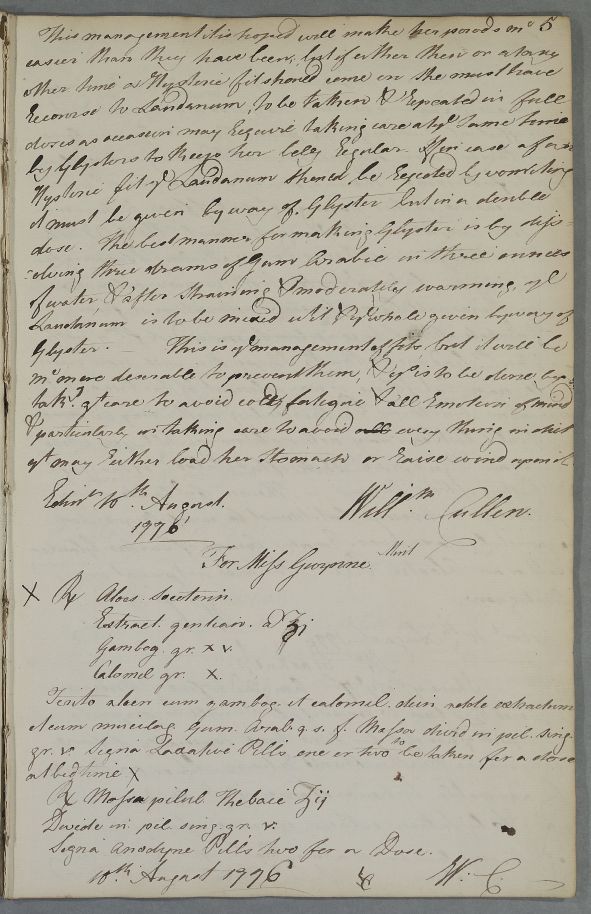 This management it is hoped will make her periods mo 5
easier than they have been, but if either then or at any
other time a Hysteric fit should come on She must have
Recourse to Laudanum, to be taken & Repeated in full
doses as occasion may Require taking care at ye Same time
by Glysters to keep her belly Regular. If in case of an
Hysteric fit ye Laudanum should be Rejected by vomiting
it must be given by way of Glyster but in a double
dose. The best manner for making Glyster is by diss=
=olving three drams of Gum Arabic in three ounces
of water & after straining & moderately warming, ye
Laudanum is to be mixed wt it & ye whole given by way of
Glyster. — This is ye management of fits but it will be
mo more desirable to prevent them, & ys is to be done by
takg gt care to avoid cold, fatigue & all Emotion of mind
& particularly in taking care to avoid all every thing in diet
yt may Either load her Stomach or Raise wind upon it
Edinr 10th August Willm Cullen.
1776
For Miss Gwynne Mint
X ℞ Aloes Socotorin.
Extract. gentian. a ʒj
Gambog. gr. xv.
Calomel gr. X.
Terito aloen cum gambog. et calomel. dein adde extractum
et cum mucilag. Gum. Arab. q. s. f. Massa divid in pil. sing.
gr. v. Signa Laxative Pills one or two to be taken for a dose
at bedtime X
℞ Massa pilul. Thebaic ʒij
Divide in pil. sing. gr. v.
Signa Anodyne Pills two for a Dose.
10th August 1776 W. C